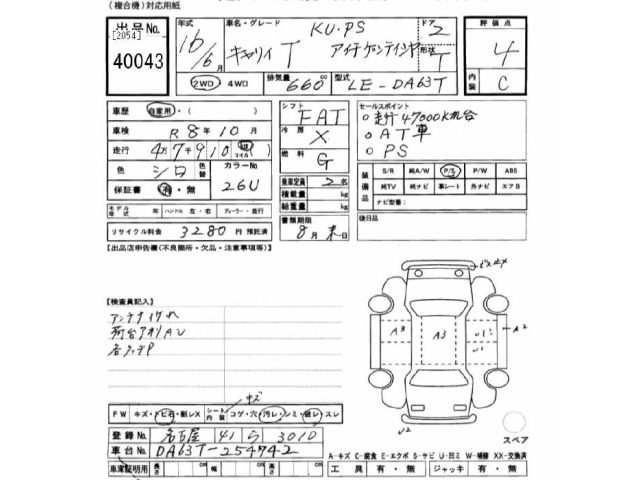 (複合機)対応用紙
出品No.
[2054]
40043
年式
16/6月
車名・グレード
KU・PS
キャリイ T
ドア
2
形状
T
評価点
4
内装
C
2WD・4WD
排気量
660cc
型式
LE-DA63T
車歴
自家用・( )
車検
R8年10月
走行
4万7千910
マイル
色
シロ
色替
カラーNo.
26U
保証書
有・無
シフト
FAT
冷房
X
燃料
G
乗車定員 2名
積載量 kg
総重量 kg
セールスポイント
○走行47000K台
○AT車
○PS
装備品
S/R
純A/W
P/S
P/W
ABS
純TV
純ナビ
革シート
外ナビ
エアB
ナビ型番:
モデル年式 年
ハンドル 左・右
ディーラー・並行
リサイクル料金
3280円
預託済
書類期限
8月末日
後日品
【出品店申告欄(不良箇所・欠品・注意事項等)】
【検査員記入】
荷台アオリAU
A3
A3
A2
U1
U1
U2
キズ
FW
キズ・トビ石・割レX
シート内装
コゲ・穴・汚レ・シミ・破レ・スレ
スペア
登録No.
名古屋 41 う 3010
車台No.
DA63T-254742
A-キズ C-腐食 E-エクボ S-サビ U-凹ミ W-補修 XX-交換済
車庫証明用
長さ
cm
幅
cm
高さ
cm
工具
有・無
ジャッキ
有・無